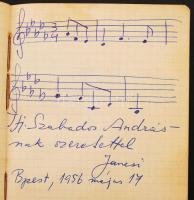 3
4
Ifj. Szabados András-
nak szeretettel
Jancsi
Bpest, 1956 május 17